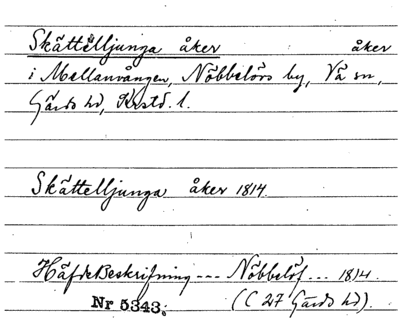 Skättelljunga åker åker
i Mellanvången, Nöbbelövs by, Vä sn,
Gärds hd, Krstd. l.
Skättelljunga åker 1814.
Häfdebeskrifning --- Nöbbelöf ... 1814.
Nr 5343. (C 27 Gärds hd).